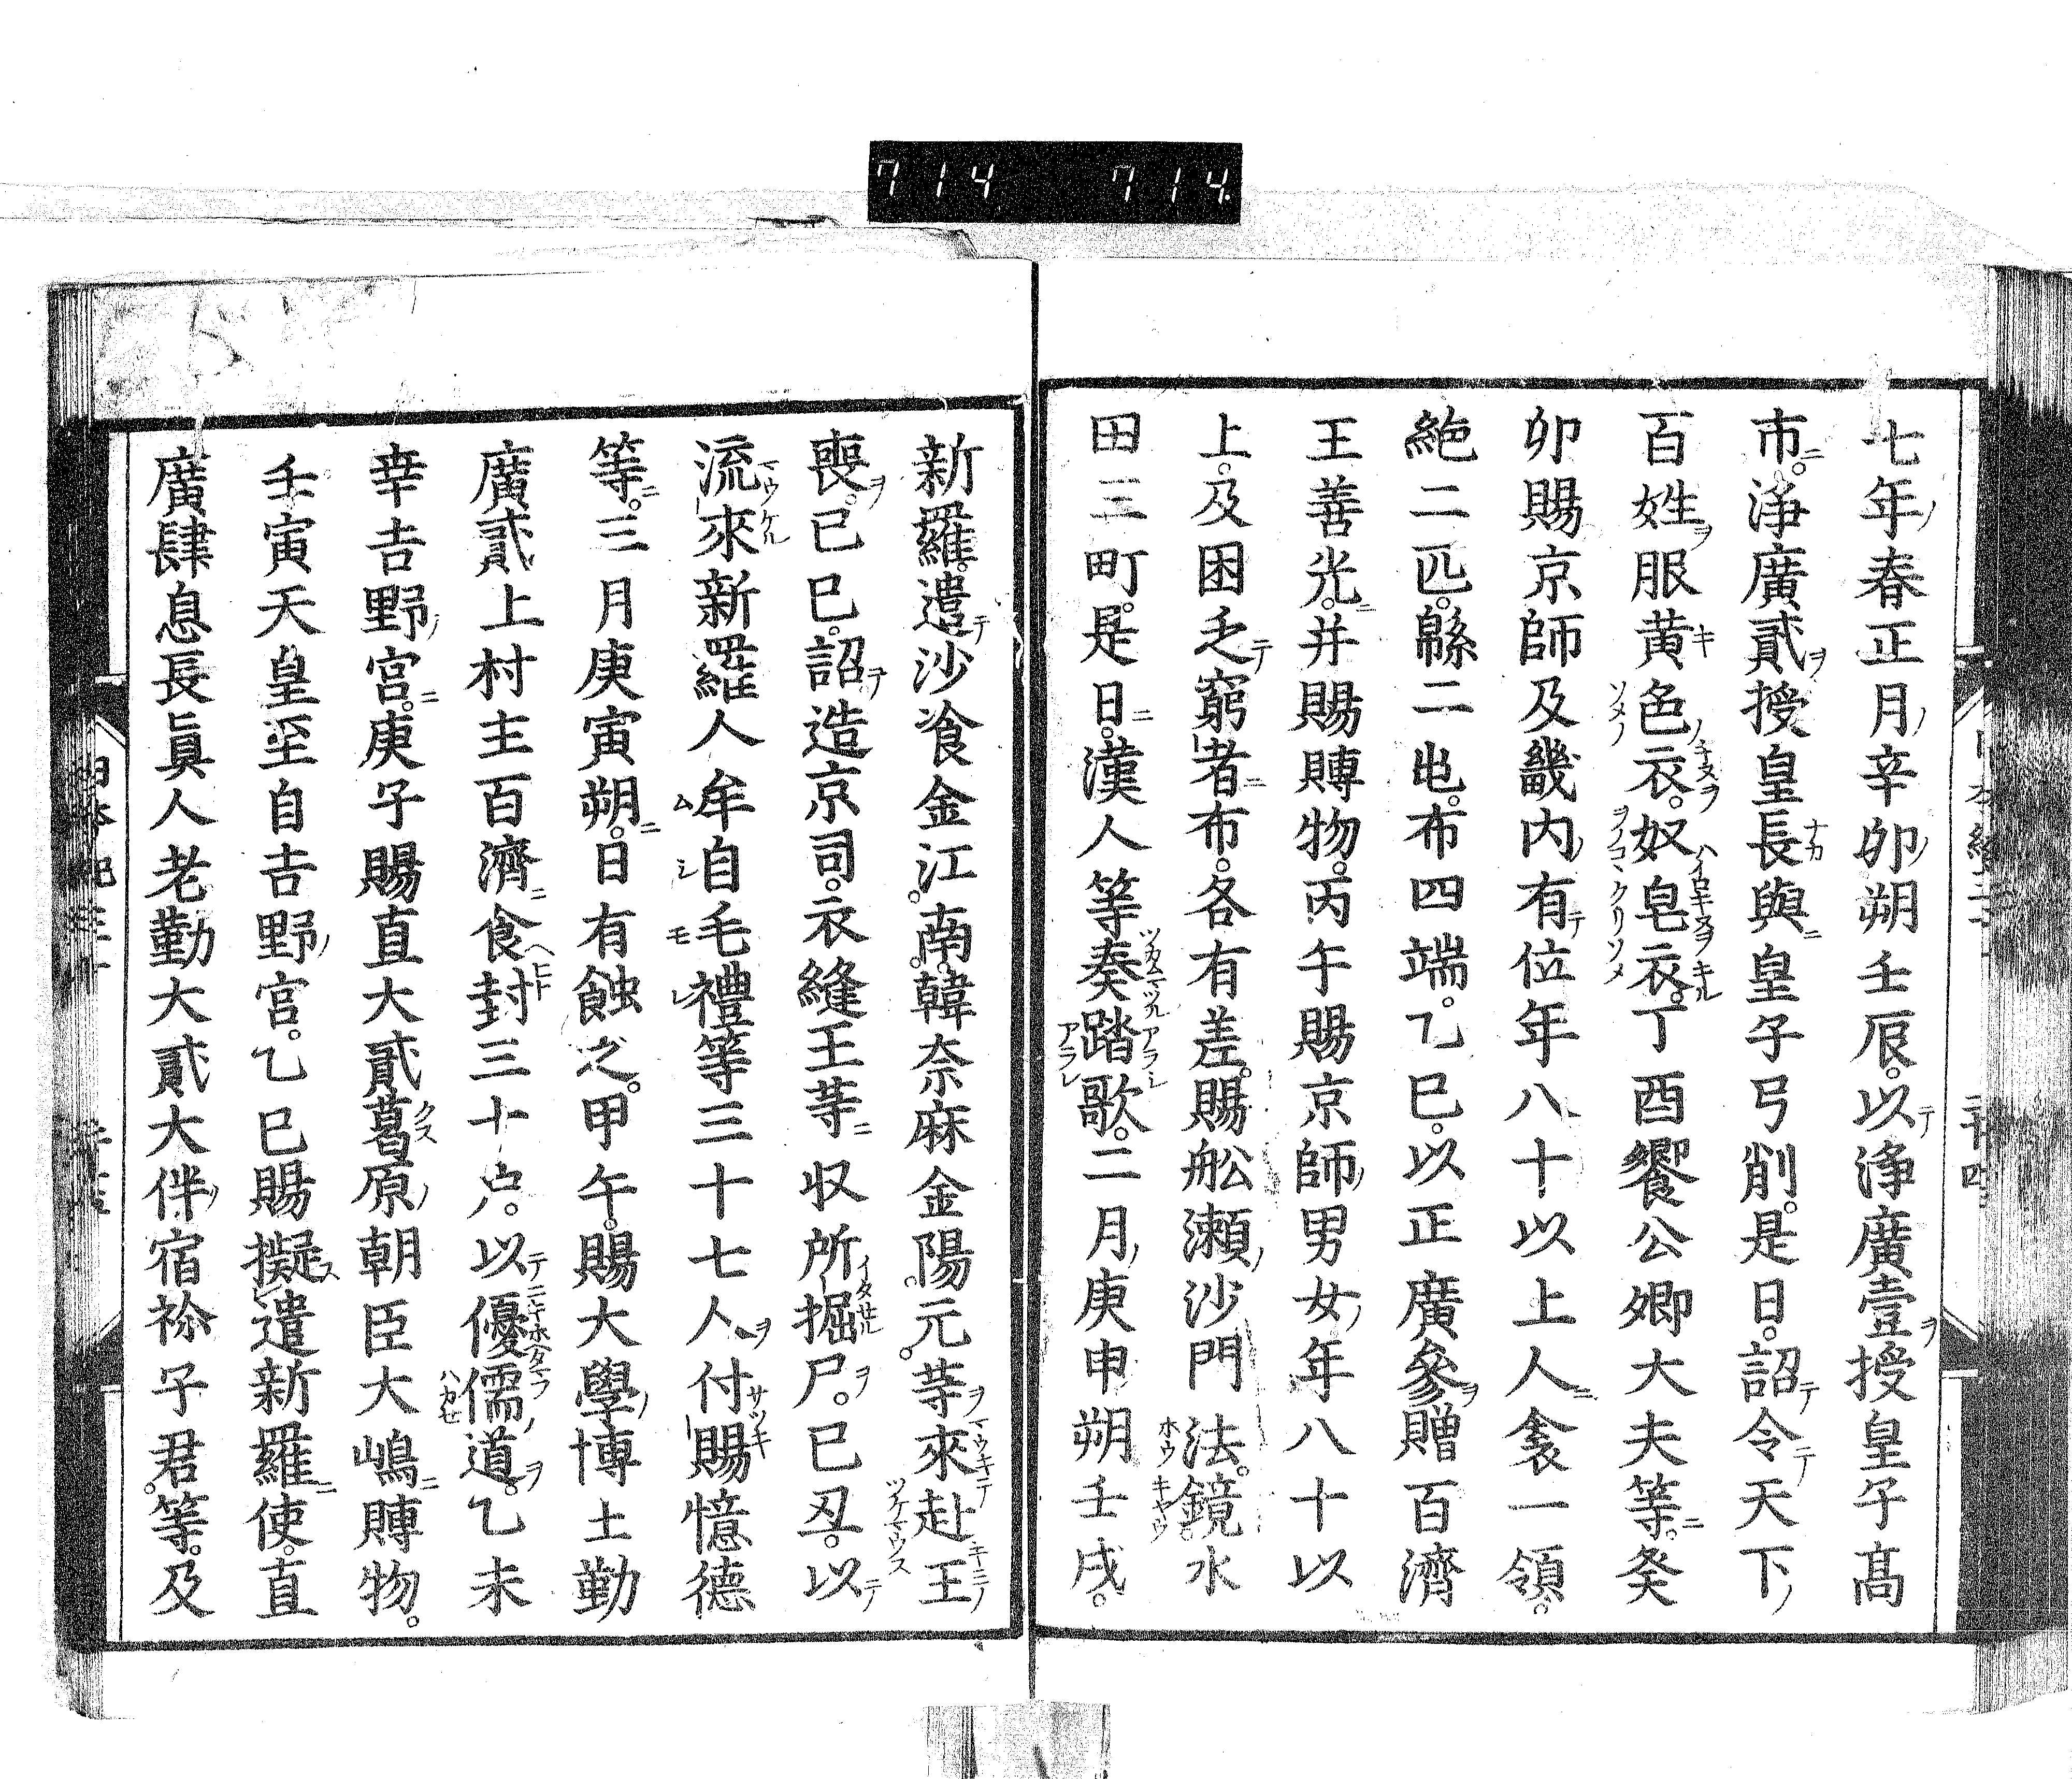 714 714
七年春正月辛卯朔壬辰。以淨廣壹授皇子髙
市。淨廣貳授皇長與皇子弓削。是日。詔令天下
百姓服黄色衣。奴皂衣。丁酉饗公卿大夫等。癸
卯賜京師及畿内有位年八十以上人衾一領。
絁二匹。緜二屯。布四端。乙巳。以正廣參贈百濟
王善光。并賜賻物。丙午賜京師男女年八十以
上。及困乏窮者布。各有差。賜舩瀬沙門法鏡水
田三町。是日。漢人等奏踏歌。二月庚申朔壬戌。
新羅。遣沙飡金江南。韓奈麻金陽元。等來赴王
喪。己巳。詔造京司。衣縫王等収所掘尸。己丑。以
流來新羅人牟自毛禮等三十七人付賜憶德
等。三月庚寅朔。日有蝕之。甲午。賜大學博士勤
廣貳上村主百濟食封三十戸。以優儒道。乙未
幸吉野宮。庚子賜直大貳葛原朝臣大嶋賻物。
壬寅天皇至自吉野宮。乙巳賜擬遣新羅使。直
廣肆息長眞人老勤大貳大伴宿祢子君。等。及